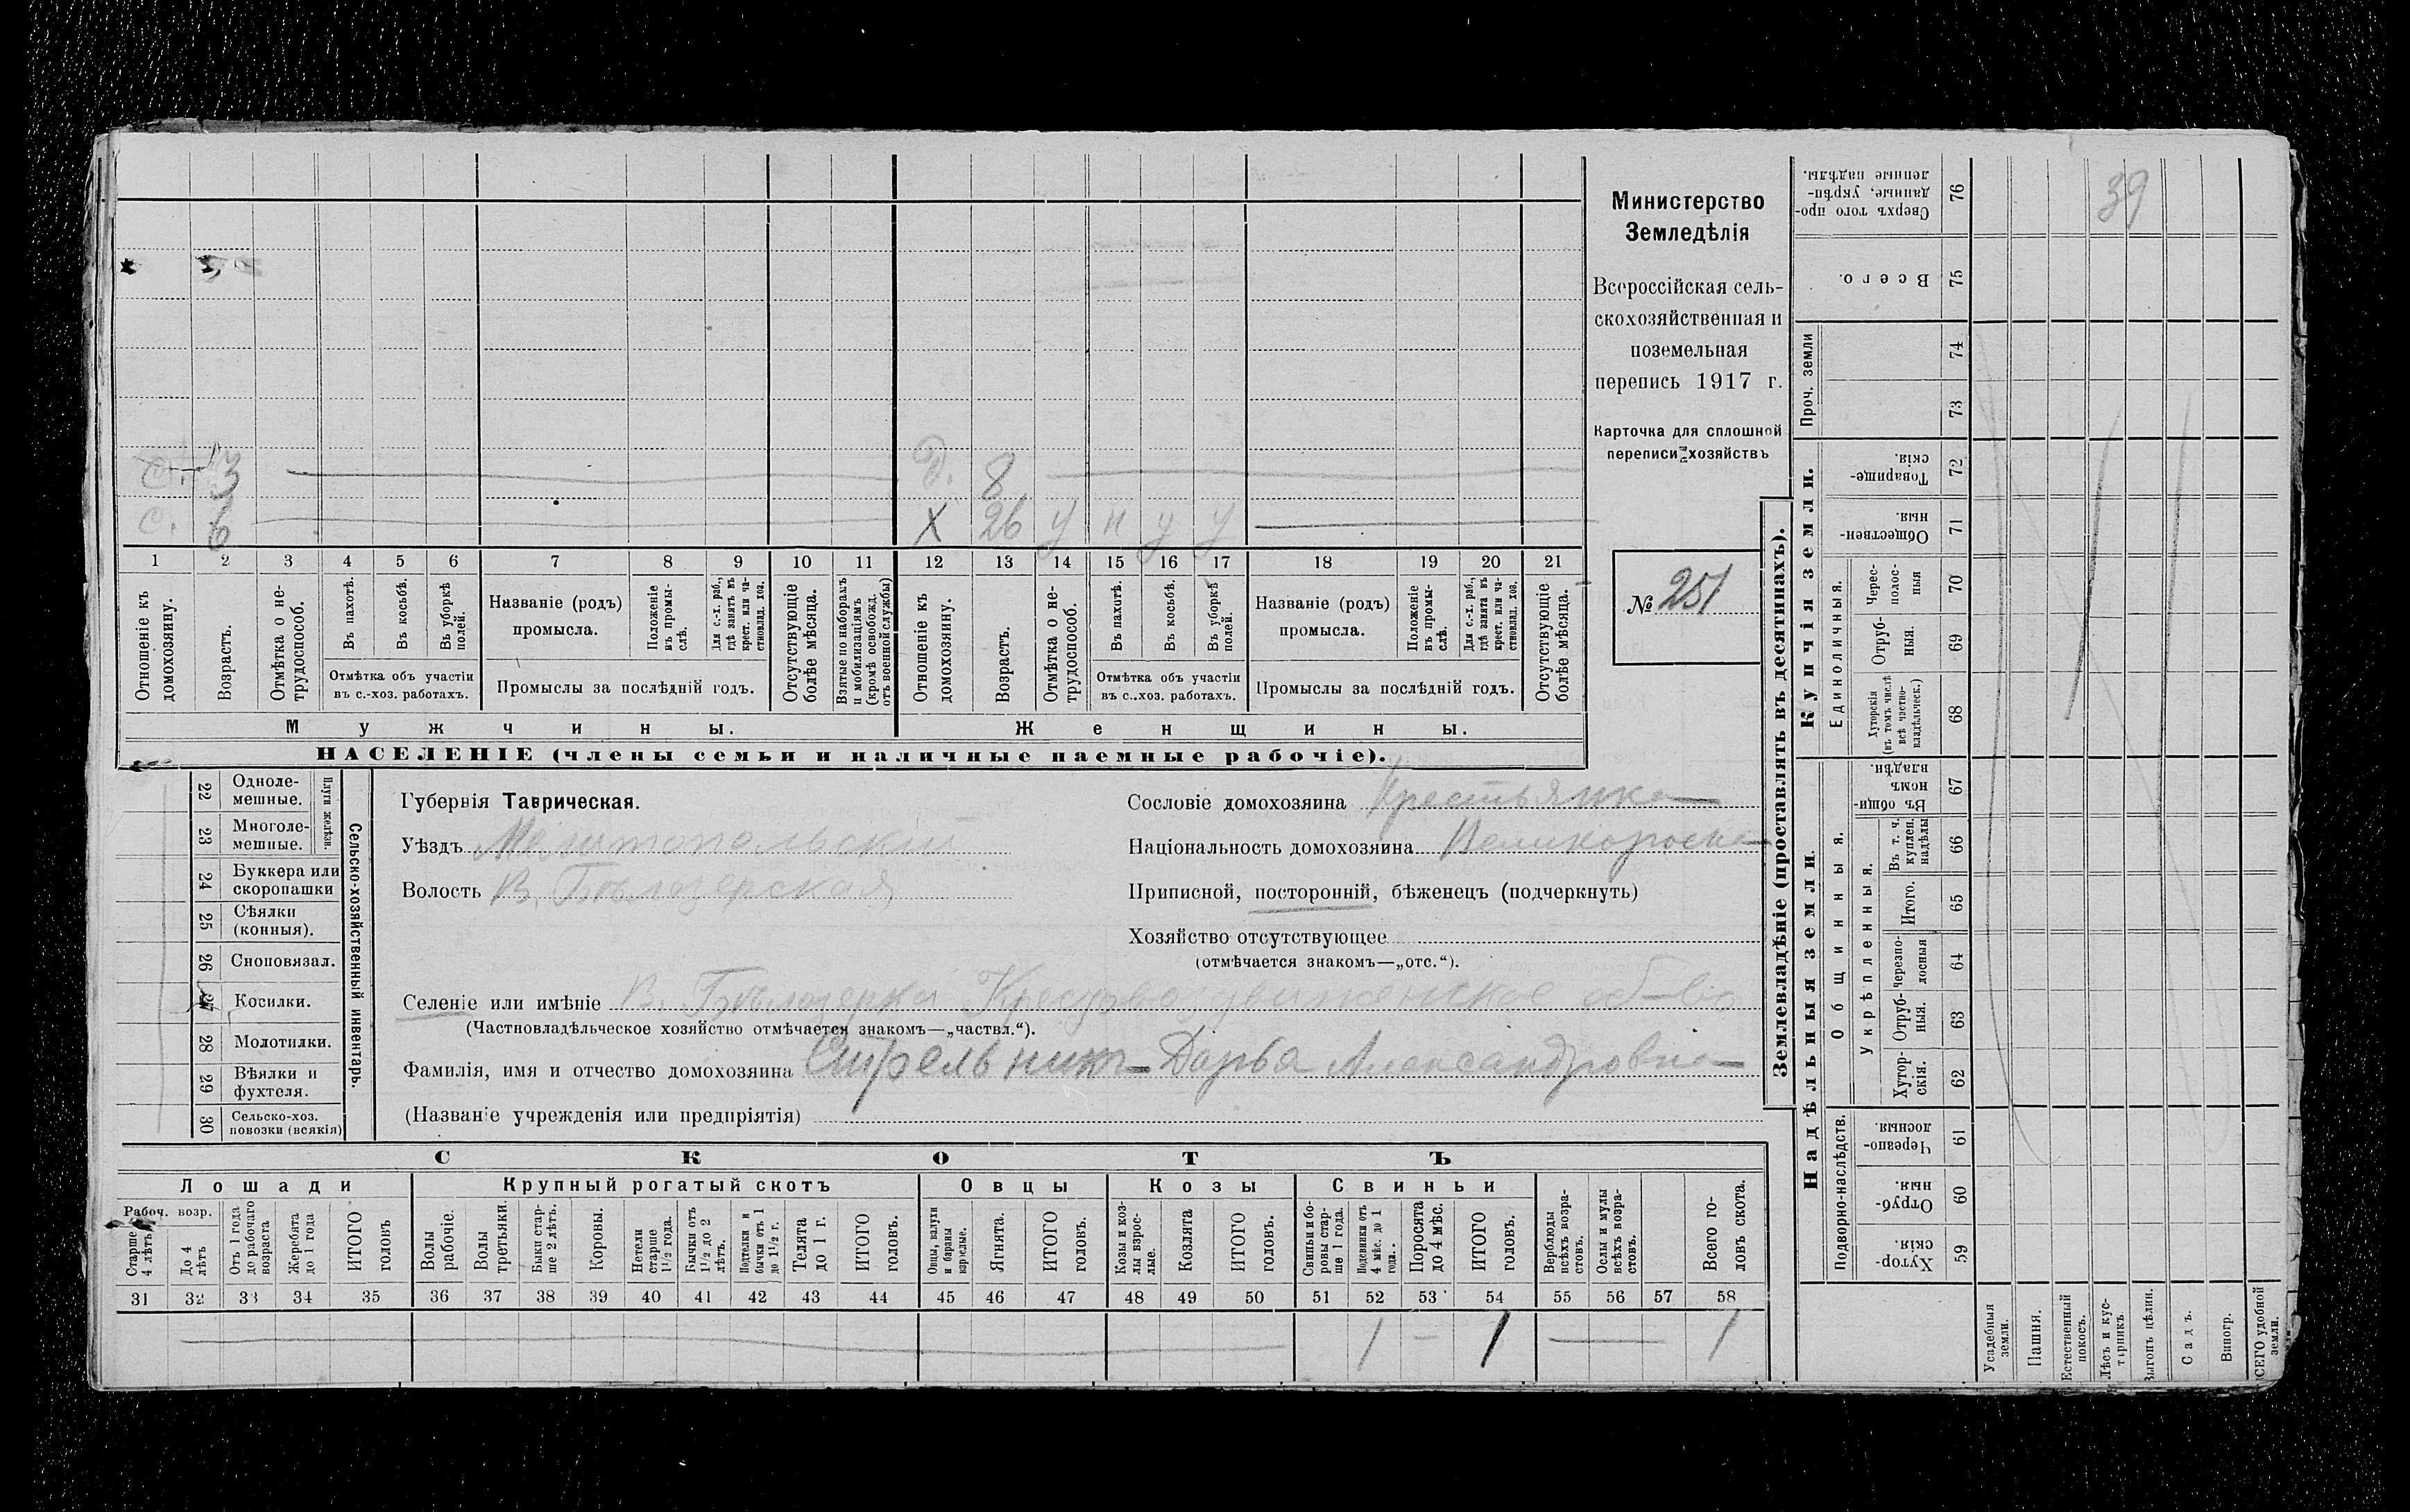 Министерство
Земледѣлія
Всероссійская сель-
скохозяйственная и
поземельная
перепись 1917 г.
Карточка для сплошной
переписи хозяйствъ
№ 251
39
с. 3 Д. 8
с. 6 Х 26 у н у у
1 2 3 4 5 6 7 8 9 10 11 12 13 14 15 16 17 18 19 20 21
Отношеніе къ домохозяину.
Возрастъ.
Отмѣтка о не-трудоспособ.
Въ пахотѣ.
Въ косьбѣ.
Въ уборкѣ полей.
Отмѣтка объ участіи
въ с.-хоз. работахъ.
Названіе (родъ)
промысла.
Положеніе въ промы-слѣ.
Для с.-х. раб., гдѣ занятъ въ крест. или ча-стновлад. хоз.
Промыслы за послѣдній годъ.
Отсутствующіе болѣе мѣсяца.
Взятые по наборамъ и мобилизаціямъ (кромѣ освобожд. отъ военной службы)
Отношеніе къ домохозяину.
Возрастъ.
Отмѣтка о не-трудоспособ.
Въ пахотѣ.
Въ косьбѣ.
Въ уборкѣ полей.
Отмѣтка объ участіи
въ с..хоз. работахъ.
Названіе (родъ)
промысла.
Положеніе въ промы-слѣ.
Для с.-х. раб., гдѣ занята въ крест. или ча-стновлад. хоз.
Промыслы за послѣдній годъ.
Отсутствующіе болѣе мѣсяца.
Мужчины.
Женщины.
НАСЕЛЕНІЕ (члены семьи и наличные наемные рабочіе).
22 Одноле-мешные.
23 Многоле-мешные.
Плуги желѣзн.
24 Буккера или скоропашки
25 Сѣялки (конныя).
26 Сноповязал.
27 Косилки.
28 Молотилки.
29 Вѣялки и фухтеля.
30 Сельско-хоз. повозки (всякія)
Сельско-хозяйственный инвентарь.
Губернія Таврическая.
Уѣздъ Мелитопольскій
Волость В. Бѣлозерская
Сословіе домохозяина Крестьянка
Національность домохозяина Великоросска
Приписной, посторонній, бѣженецъ (подчеркнуть)
Хозяйство отсутствующее
(отмѣчается знакомъ—„отс.“).
Селеніе или имѣніе В. Бѣлозерка Крестовоздвиженское об-во
(Частновладѣльческое хозяйство отмѣчается знакомъ—„частвл.“).
Фамилія, имя и отчество домохозяина Стрельник Дарья Александровна
(Названіе учрежденія или предпріятія)
СКОТЪ
Лошади Крупный рогатый скотъ Овцы Козы Свиньи
Рабоч. возр.
Старше 4 лѣтъ
До 4 лѣтъ
Отъ 1 года до рабочаго возраста
Жеребята до 1 года
ИТОГО головъ
Волы рабочіе.
Волы третьяки.
Быки стар-ше 2 лѣтъ.
Коровы.
Нетели старше 1½ года.
Бычки отъ 1½ до 2 лѣтъ.
Подтелки и бычки отъ 1 до 1½ г.
Телята до 1 г.
ИТОГО головъ.
Овцы, валухи и бараны взрослые.
Ягнята.
ИТОГО головъ.
Козы и коз-лы взрос-лые.
Козлята
ИТОГО головъ.
Свиньи и бо-ровы стар-ше 1 года.
Подсвинки отъ 4 мѣс. до 1 года.
Поросята до 4 мѣс.
ИТОГО головъ.
Верблюды всѣхъ возра-стовъ.
Ослы и мулы всѣхъ возра-стовъ.
Всего го-ловъ скота.
31 32 33 34 35 36 37 38 39 40 41 42 43 44 45 46 47 48 49 50 51 52 53 54 55 56 57 58
1 — 1 — 1
Землевладѣніе (проставлять въ десятинахъ).
Купчія земли.
Надѣльныя земли.
Сверхъ того про-данные, укрѣп-ленные надѣлы. 76
Всего. 75
Проч. земли 74 73
Товарище-скія. 72
Обществен-ныя. 71
Единоличныя.
Черес-полос-ныя 70
Отруб-ныя. 69
Хуторскія (въ томъ числѣ всѣ частно-владѣльческ.) 68
Общинныя.
Въ общи-номъ владѣн. 67
Укрѣпленныя.
Въ т. ч. куплен. надѣлы 66
Итого. 65
Черезпо-лосныя 64
Отруб-ныя. 63
Хутор-скія. 62
Подворно-наслѣдств.
Черезпо-лосныя. 61
Отруб-ныя. 60
Хутор-скія. 59
Усадебныя земли.
Пашня.
Естественный покосъ.
Лѣсъ и кус-тарникъ
Выгонъ цѣлин.
Садъ.
Виногр.
ВСЕГО удобной земли.